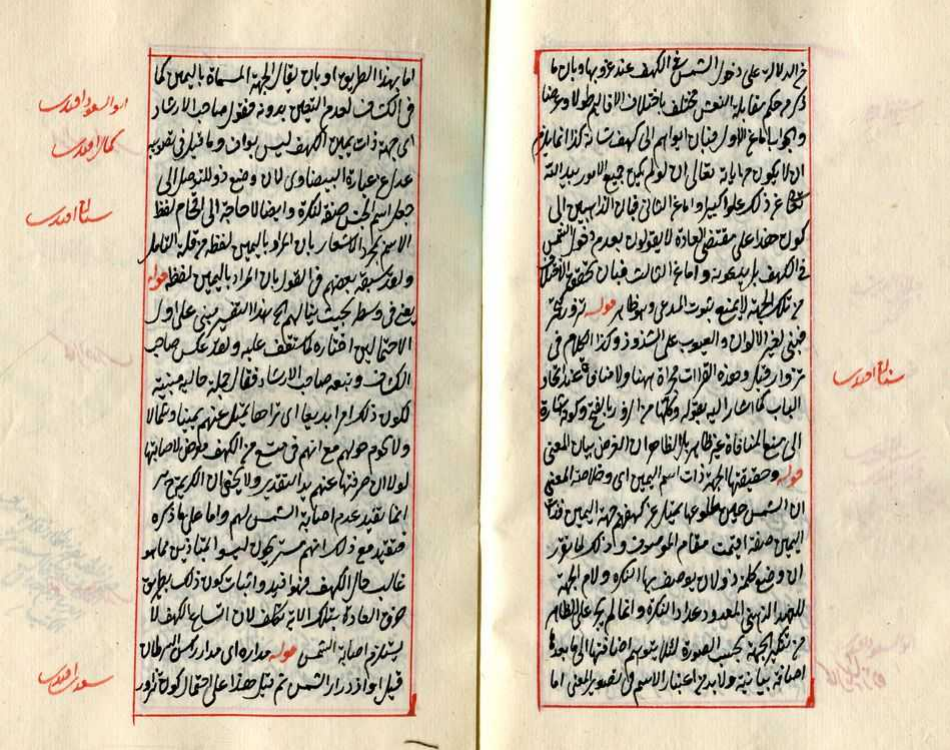 الدلالة على دخول الشمس في الكهف عند غروبها وبان ما
ذكره حكم مقابلة النعش مختلف باختلاف الاقاليم طولا وعرضا
والجواب اما عن الاول فبان ابواهم الى كهف شانه كذا انما يلزم
ان لا يكون من ايات الله تعالى ان لو لم يكن جميع الامور بيد الله
عن ذلك علوا كبيرا واما عن الثاني فبان الذاهبين الى
كون هذا على مقتضى العادة لا يقولون بعدم دخول الشمس
في الكهف بل يدعونه واما عن الثالث فبان تحقق الاختلاف
من تلك الجهة لا يمنع ثبوت المدعى وهو ظاهر قوله تزور
فبني لغير الالوان والعيوب على الشذوذ وكذا الكلام في
تزوار وهذه القراءات مجراة ههنا ولا منافاة عند اتحاد
الباب كما اشار اليه بقوله وكلها من الزور بالفتح وكونه عبارة
الى منع المنافاة غير ظاهر بل الظاهر ان الغرض بيان المعنى
قوله وحقيقتها الجهة ذات اسم اليمين اي وخلاصة المعنى
ان الشمس حين طلوعها تميل عن كهفهم جهة اليمين
اليمين صفة اقيمت مقام الموصوف وذلك لما تقرر
ان وضع كلمة ذو لان يوصف بها النكرة ولام الجهة
للعهد الذهني المعدود عداد النكرة وانما لم يجر على الظاهر
من تنكير الجهة بحسب الصورة لئلا يتوهم اضافتها الى ما بعدها
اضافة بيانية ولا بد من اعتبار الاسم في تصوير المعنى اما
سنان افندي
اما بهذا الطريق او بان يقال الجهة المسماة باليمين كما
في الكشاف لعدم التعين بدونه فقول صاحب الارشاد
اي جهة ذات يمين الكهف ليس بواف وما قيل في تصويبه
عدل عن عبارة البيضاوي لان وضع ذو للتوصل الى
جعل اسم الجنس صفة لنكرة وايضا لا حاجة الى اقحام لفظ
الاسم لمجرد الاشعار بان المراد باليمين لفظه من قلة التأمل
ولقد سبقه بعضهم في القول بان المراد باليمين لفظه قوله
يعني في وسطه بحيث ينالهم الخ هذا التفسير مبني على اول
الاحتمالين اختاره كما ستقف عليه ولقد عكس صاحب
الكشاف وتبعه صاحب الارشاد فقال جملة حالية مبينة
لكون ذلك امرا بديعا اي تراها تميل عنهم يمينا وشمالا
ولا تحوم حولهم مع انهم في متسع من الكهف معرض لاصابتها
لولا ان صرفتها عنهم يد التقدير ولا يخفى ان الكريمة
انما تفيد عدم اصابة الشمس لهم واما على ما ذكره
فتفيد مع ذلك انهم مستريحون ليسوا المتأذين مما هو
غالب حال الكهف فهو افيد واثبات كون ذلك بطريق
خرق العادة بتلك الاية تكلف لان اتساع الكهف لا
يستلزم اصابة الشمس قوله مداره اي مدار رأس السرطان
قيل او اذ دار الشمس ثم قيل هذا على احتمال كون تزاور
ابو السعود افندي
كمال افندي
سنان افندي
سعدي افندي